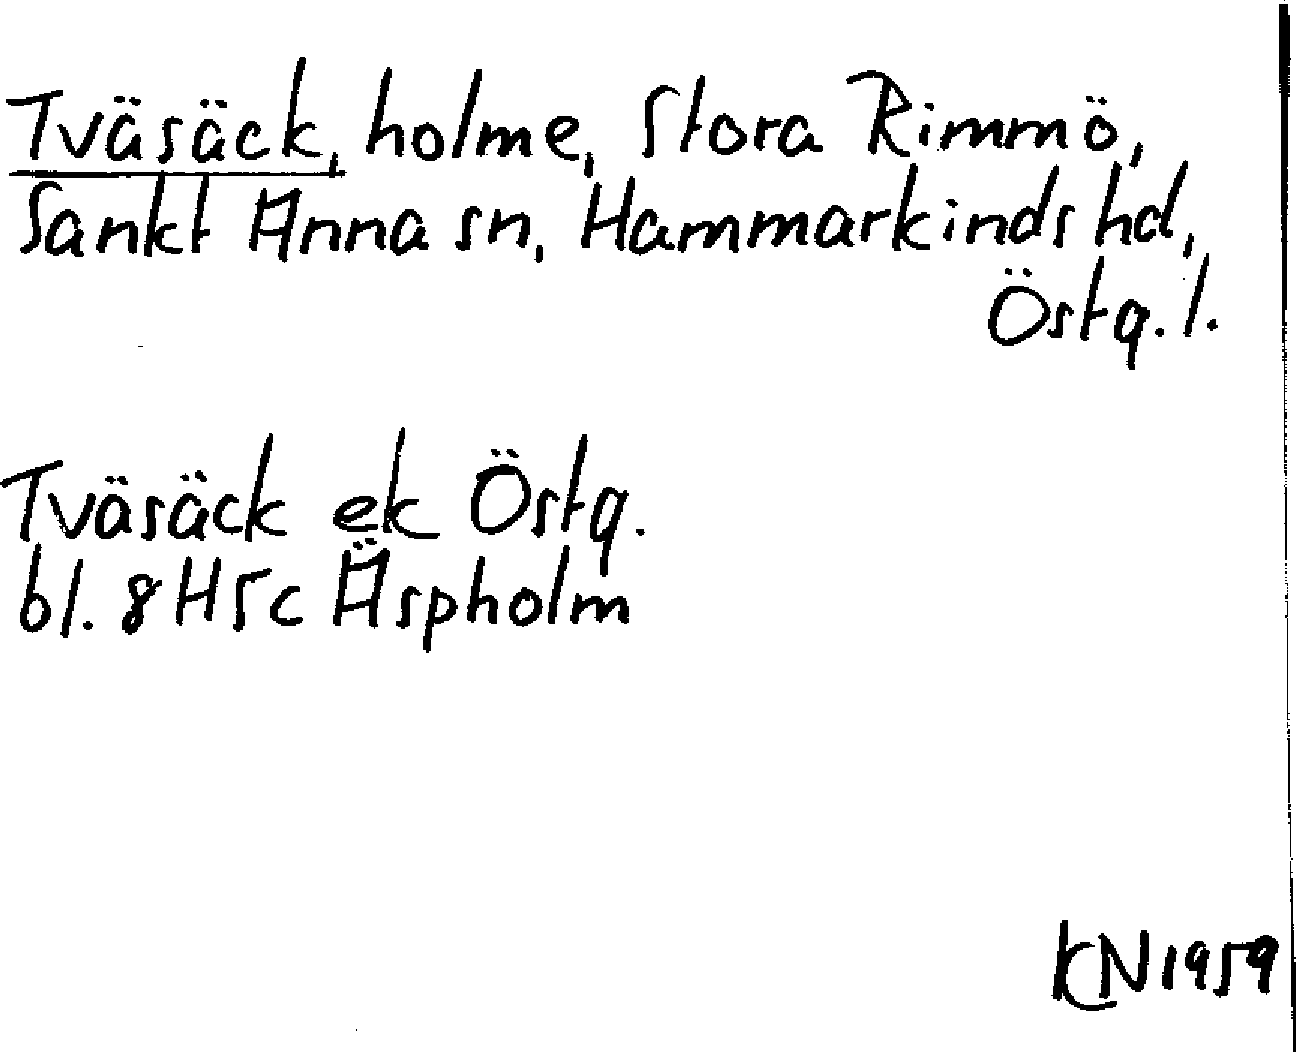 Tväsäck, holme, Stora Rimmö,
Sankt Anna sn, Hammarkinds hd,
Östg. l.
Tväsäck ek Östg.
bl. 8H5c Äspholm
KN1959